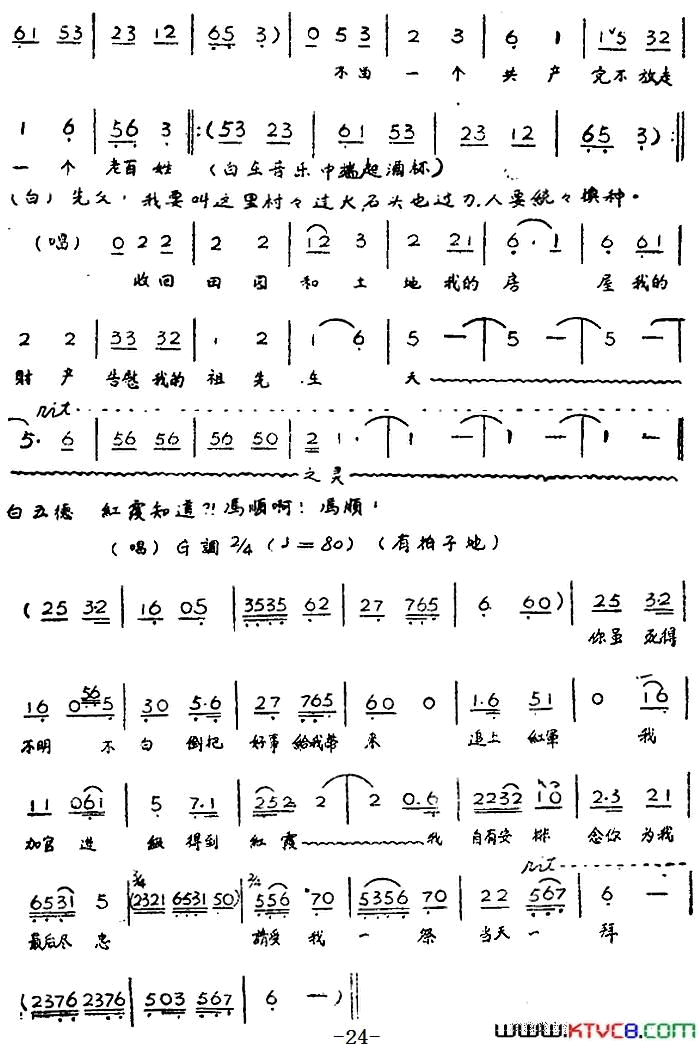 6̣1 53 | 23 12 | 6̣5̣ 3̣) | 0 53 | 2 3 | 6̣ 1 | 15 32 |
不留 一个 共产党不放走
1 6̣ | 5̣6̣ 3̣ :(53 23 | 6̣1 53 | 23 12 | 6̣5̣ 3̣) :
一个 老百姓 (白在音乐中端起酒杯)
(白) 先父,我要叫这里村々过火,石头也过刀,人要统々换种。
(唱) 0 22 | 2 2 | 12 3 | 2 21 | 6̣. 1 | 6̣ 6̣1
收回 田园 和土地我的房 屋我的
2 2 | 33 32 | 1 2 | 1 6̣ | 5 — | 5 — | 5 —
财产 告慰我的祖先在 天
rit
5. 6 | 56 56 | 56 50 | 2 1. | 1 — | 1 — | 1 —
之灵
白五德 红霞知道?!冯顺啊!冯顺,
(唱) G调 2/4 (♩=80) (有拍子地)
(25 3·2 | 16 05 | 3535 62 | 27 765 | 6 60) | 25 3·2
你虽 死得
16 0565 | 30 5·6 | 27 765 | 60 0 | 1·6 51 | 0 16
不明 不白 倒把 好事给我带来 追上 红军 我
11 061 | 5 7·1 | 252 2 | 2 0·6 | 2232 10 | 2·3 21
加官 进 级 得到 红霞 我 自有安排 念你 为我
rit
6531 5 | 3/4 (2321 6531 50) | 2/4 556 70 | 5356 70 | 22 567 | 6 —
最后尽忠 请受 我一祭 当天一 拜
(2376 2376 | 503 567 | 6 —)
-24-
www.KTVC8.com